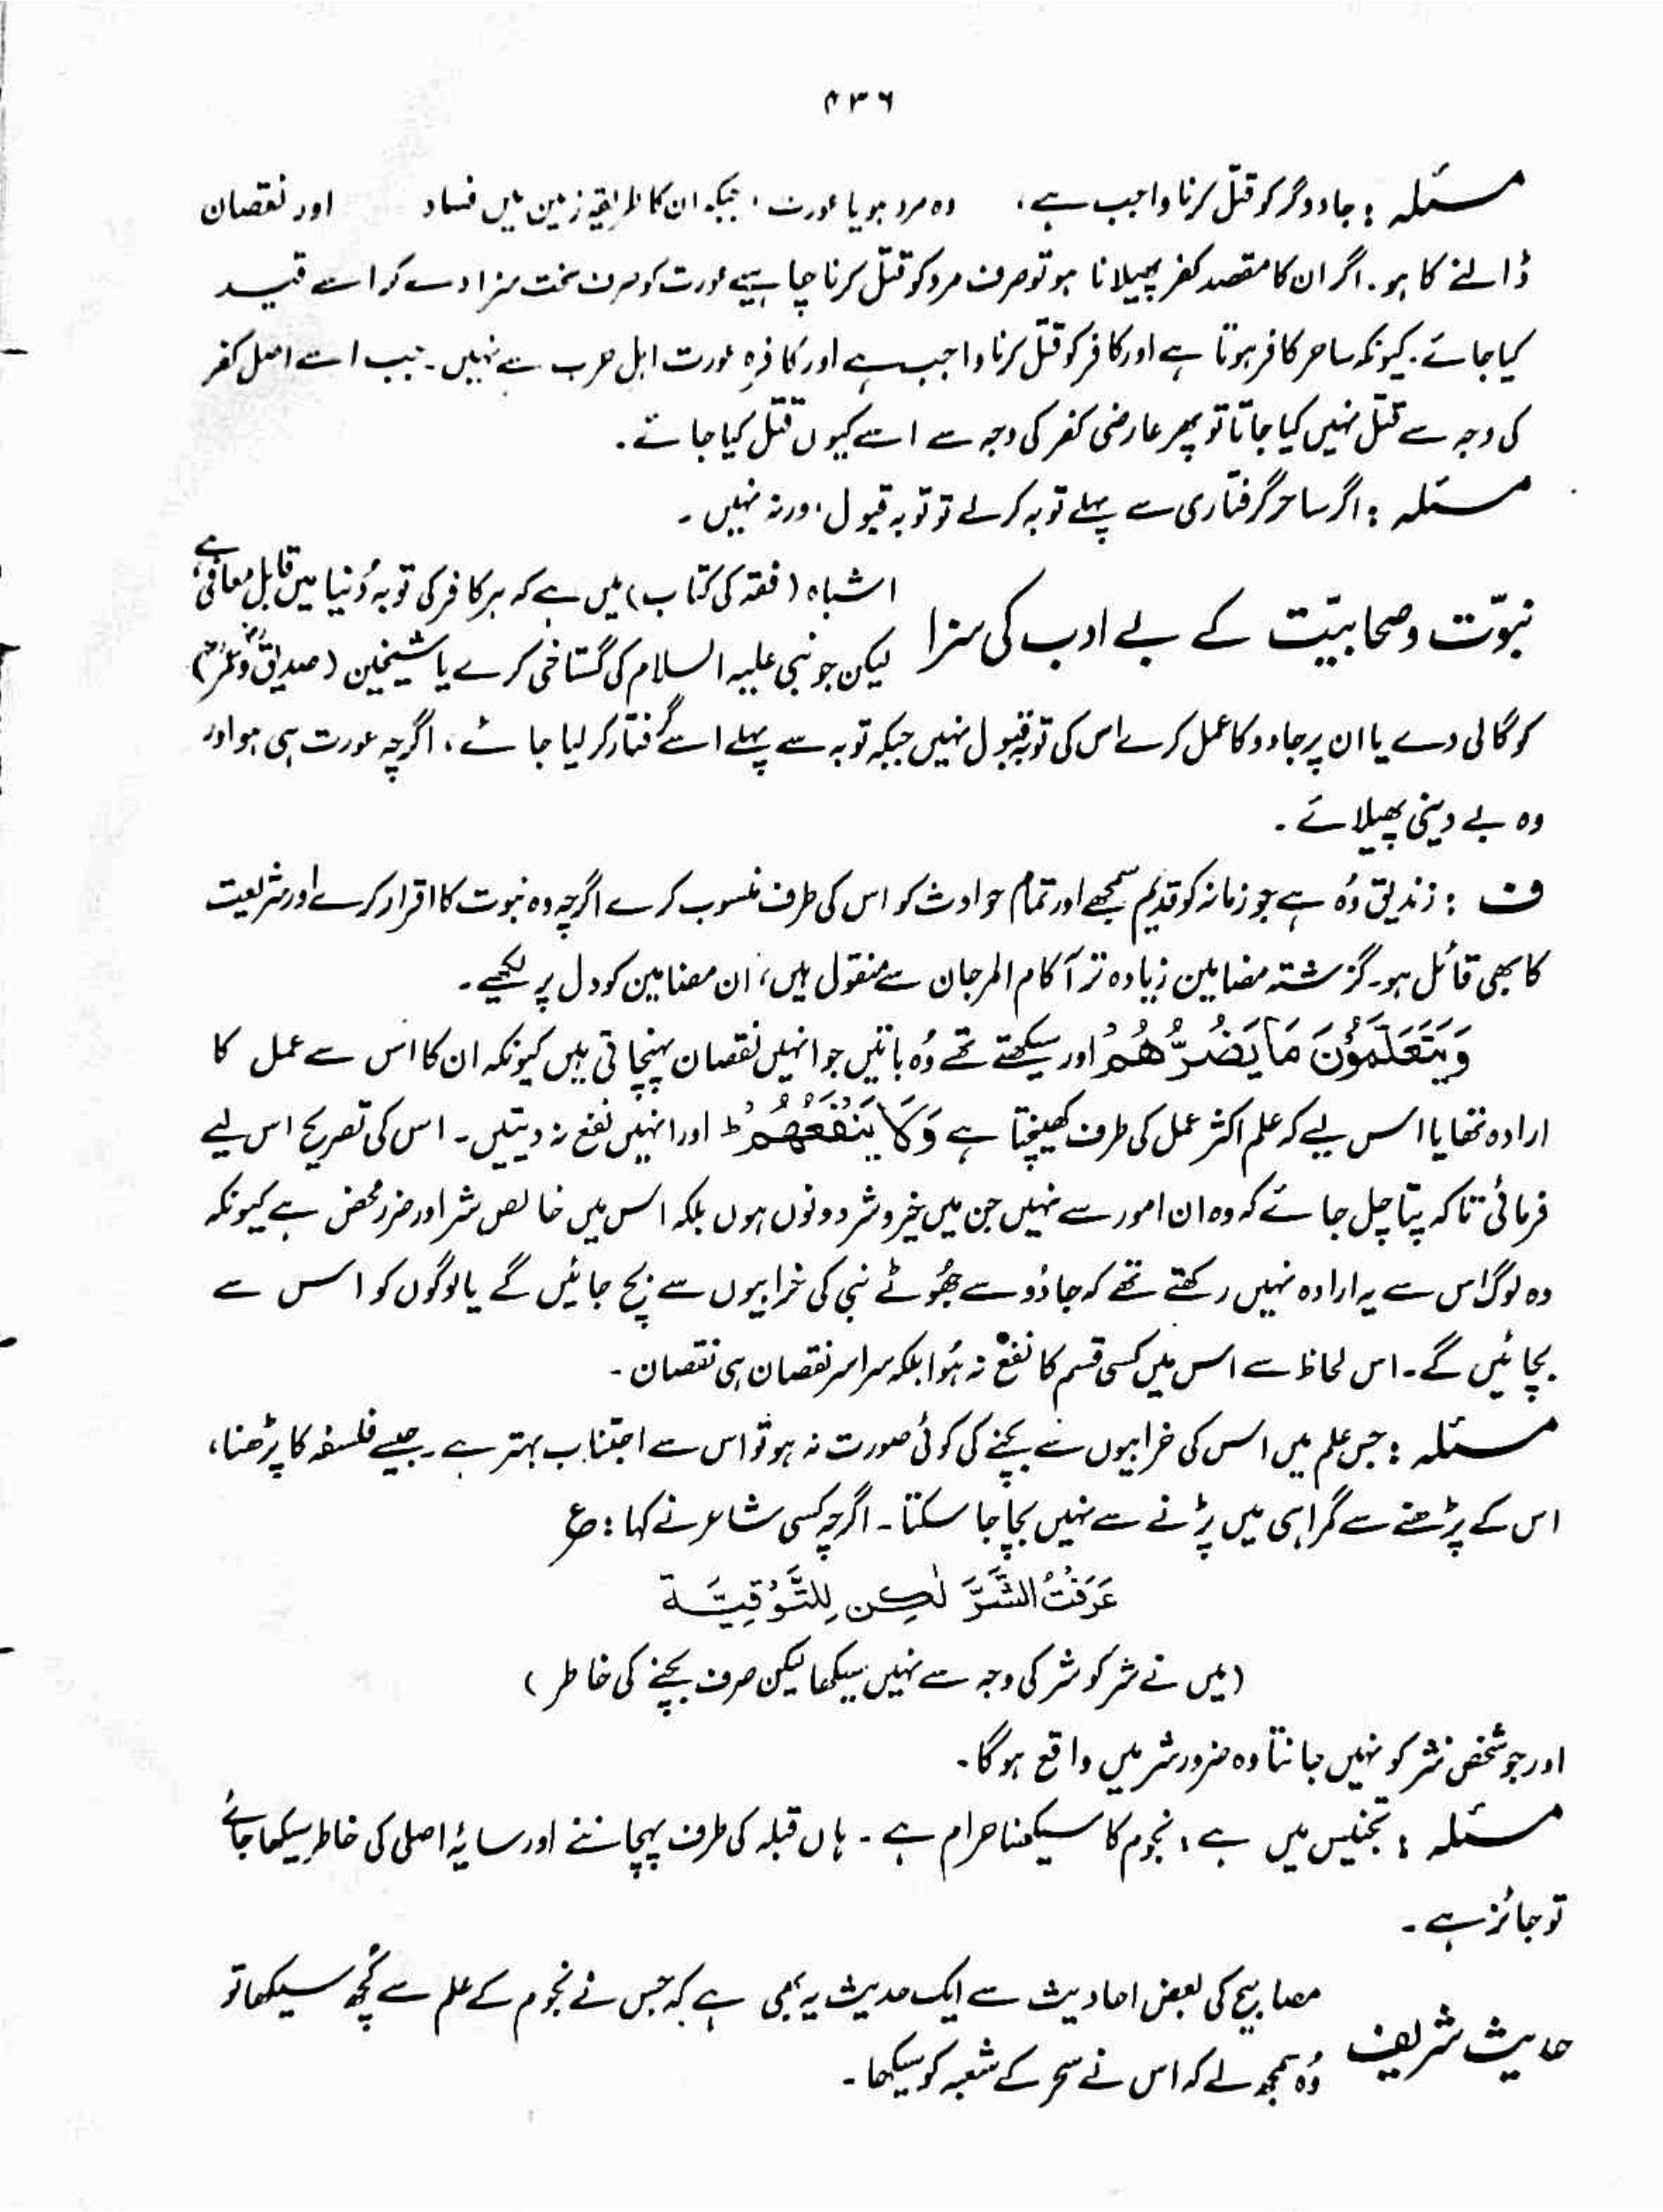 ۴۳۶
مسئلہ : جادوگر کو قتل کرنا واجب ہے، وہ مرد ہو یا عورت ، جبکہ ان کا طریقہ زمین میں فساد اور نقصان
ڈالنے کا ہو۔ اگر ان کا مقصد کفر پھیلانا ہو تو صرف مرد کو قتل کرنا چاہیے عورت کو صرف سخت سزا دے کر اسے قید
کیا جائے۔ کیونکہ ساحر کافر ہوتا ہے اور کافر کو قتل کرنا واجب ہے اور کافرہ عورت اہل حرب سے نہیں۔ جب اسے اصل کفر
کی وجہ سے قتل نہیں کیا جاتا تو پھر عارضی کفر کی وجہ سے اسے کیوں قتل کیا جائے۔
مسئلہ : اگر ساحر گرفتاری سے پہلے توبہ کرلے تو توبہ قبول، ورنہ نہیں۔
نبوّت و صحابیّت کے بے ادب کی سزا
اشباہ (فقہ کی کتاب) میں ہے کہ ہر کافر کی توبہ دُنیا میں قابل معافی ہے
لیکن جو نبی علیہ السلام کی گستاخی کرے یا شیخین (صدیقؓ و عمرؓ)
کو گالی دے یا ان پر جادو کا عمل کرے اس کی توبہ قبول نہیں جبکہ توبہ سے پہلے اسے گرفتار کر لیا جائے، اگرچہ عورت ہی ہو اور
وہ بے دینی پھیلائے۔
ف : زندیق وُہ ہے جو زمانہ کو قدیم سمجھے اور تمام حوادث کو اس کی طرف منسوب کرے اگرچہ وہ نبوت کا اقرار کرے اور شریعت
کا بھی قائل ہو۔ گزشتہ مضامین زیادہ تر آکام المرجان سے منقول ہیں، ان مضامین کو دل پر لکھیے۔
وَيَتَعَلَّمُوْنَ مَا يَضُرُّهُمْ اور سیکھتے تھے وُہ باتیں جو انہیں نقصان پہنچاتی ہیں کیونکہ ان کا اس سے عمل کا
ارادہ تھا یا اس لیے کہ علم اکثر عمل کی طرف کھینچتا ہے وَلَا يَنْفَعُهُمْ ط اور انہیں نفع نہ دیتیں۔ اس کی تصریح اس لیے
فرمائی تاکہ پتا چل جائے کہ وہ ان امور سے نہیں جن میں خیر و شر دونوں ہوں بلکہ اس میں خالص شر اور ضرر محض ہے کیونکہ
وہ لوگ اس سے یہ ارادہ نہیں رکھتے تھے کہ جادُو سے جھُوٹے نبی کی خرابیوں سے بچ جائیں گے یا لوگوں کو اس سے
بچائیں گے۔ اس لحاظ سے اس میں کسی قسم کا نفع نہ ہُوا بلکہ سراسر نقصان ہی نقصان۔
مسئلہ : جس علم میں اس کی خرابیوں سے بچنے کی کوئی صورت نہ ہو تو اس سے اجتناب بہتر ہے۔ جیسے فلسفہ کا پڑھنا،
اس کے پڑھنے سے گمراہی میں پڑنے سے نہیں بچا جا سکتا۔ اگرچہ کسی شاعر نے کہا : ع
عَرَفْتُ الشَّرَّ لٰكِن لِلتَّوْقِيَّة
(میں نے شر کو شر کی وجہ سے نہیں سیکھا لیکن صرف بچنے کی خاطر)
اور جو شخص شر کو نہیں جانتا وہ ضرور شر میں واقع ہوگا۔
مسئلہ : تجنیس میں ہے ، نجوم کا سیکھنا حرام ہے ۔ ہاں قبلہ کی طرف پہچاننے اور سایۂ اصلی کی خاطر سیکھا جائے
تو جائز ہے۔
حدیث شریف
مصابیح کی بعض احادیث سے ایک حدیث یہ بھی ہے کہ جس نے نجوم کے علم سے کُچھ سیکھا تو
وُہ سمجھ لے کہ اس نے سحر کے شعبہ کو سیکھا۔